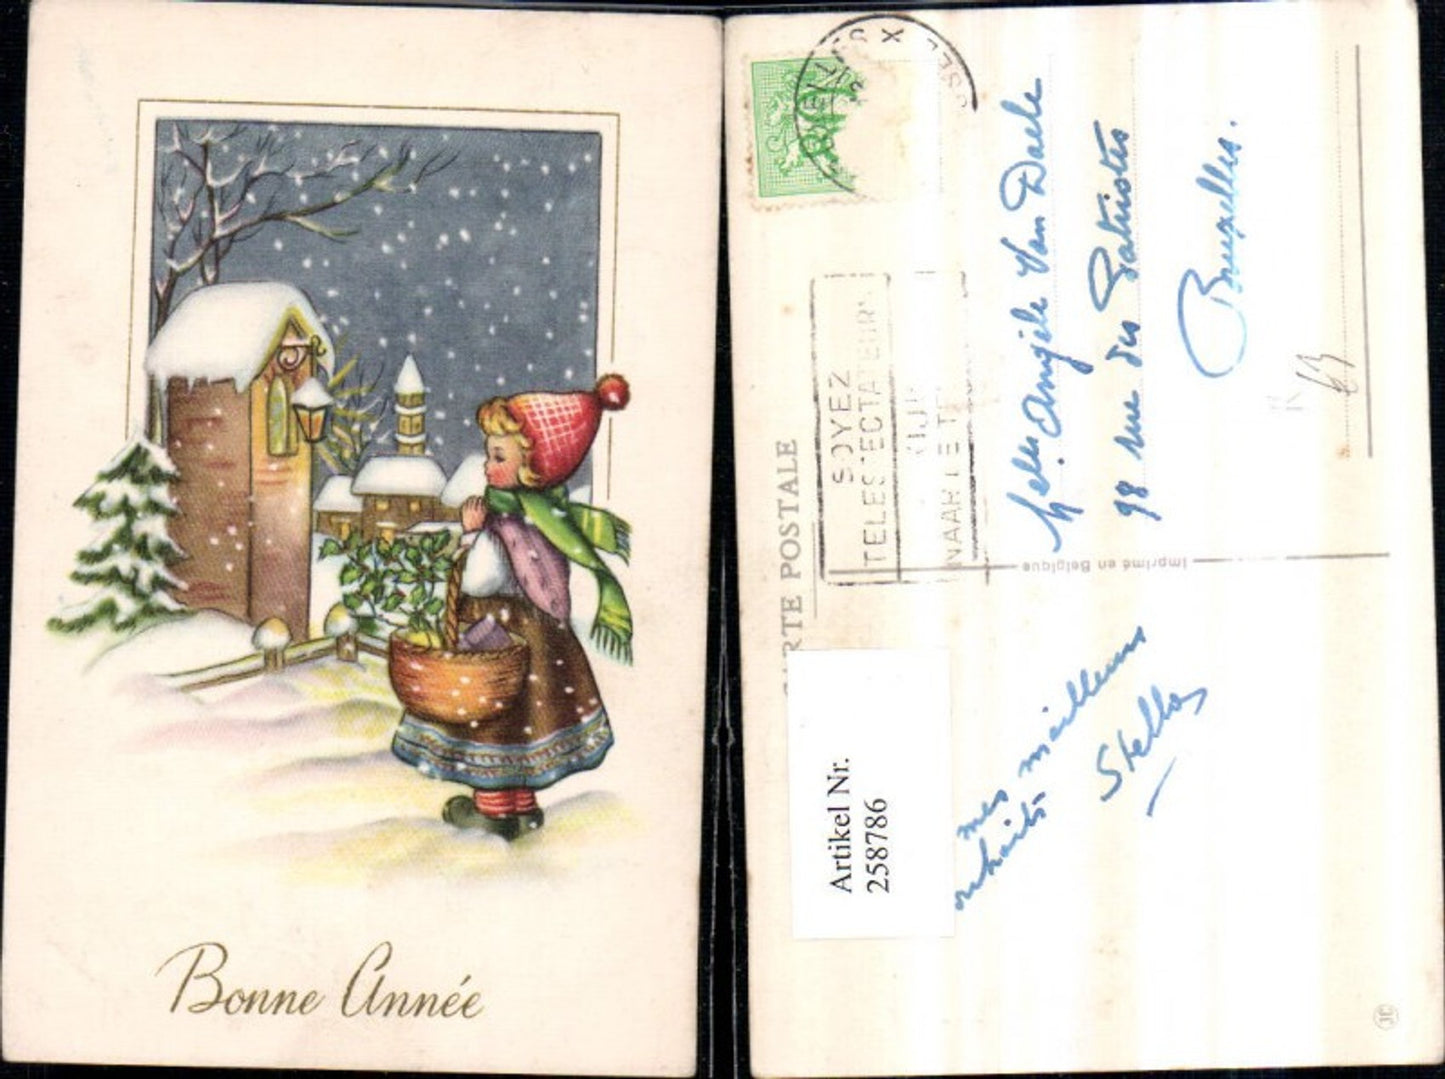 Bonne Année
CARTE POSTALE
SOYEZ
TELESPECTATEUR
NAAR I E T
Melle Angèle Van Daele
98 rue des Patriotes
Bruxelles.
Imprimé en Belgique
mes meilleurs
souhaits
Stella
Artikel Nr.
258786
63
JC